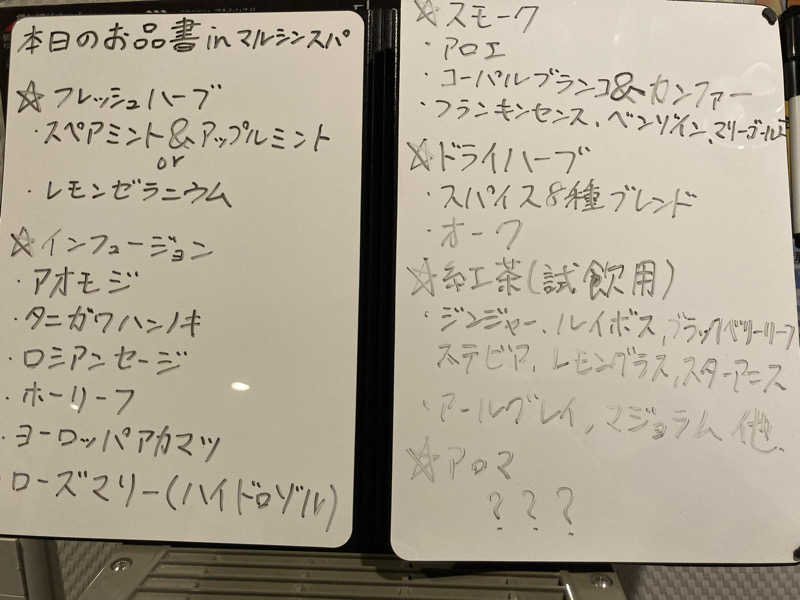 本日のお品書 in マルシンスパ
☆ フレッシュハーブ
・スペアミント&アップルミント
or
・レモンゼラニウム
☆ インフュージョン
・アオモジ
・タニガワハンノキ
・ロシアンセージ
・ホーリーフ
・ヨーロッパアカマツ
・ローズマリー(ハイドロゾル)
☆ スモーク
・アロエ
・コーパルブランコ&カンファー
・フランキンセンス、ベンゾイン、マリーゴールド
☆ ドライハーブ
・スパイス8種ブレンド
・オーク
☆ 紅茶(試飲用)
・ジンジャー、ルイボス、ブラックベリーリーフ
ステビア、レモングラス、スターアニス
・アールグレイ、マジョラム 他
☆ アロマ
? ? ?